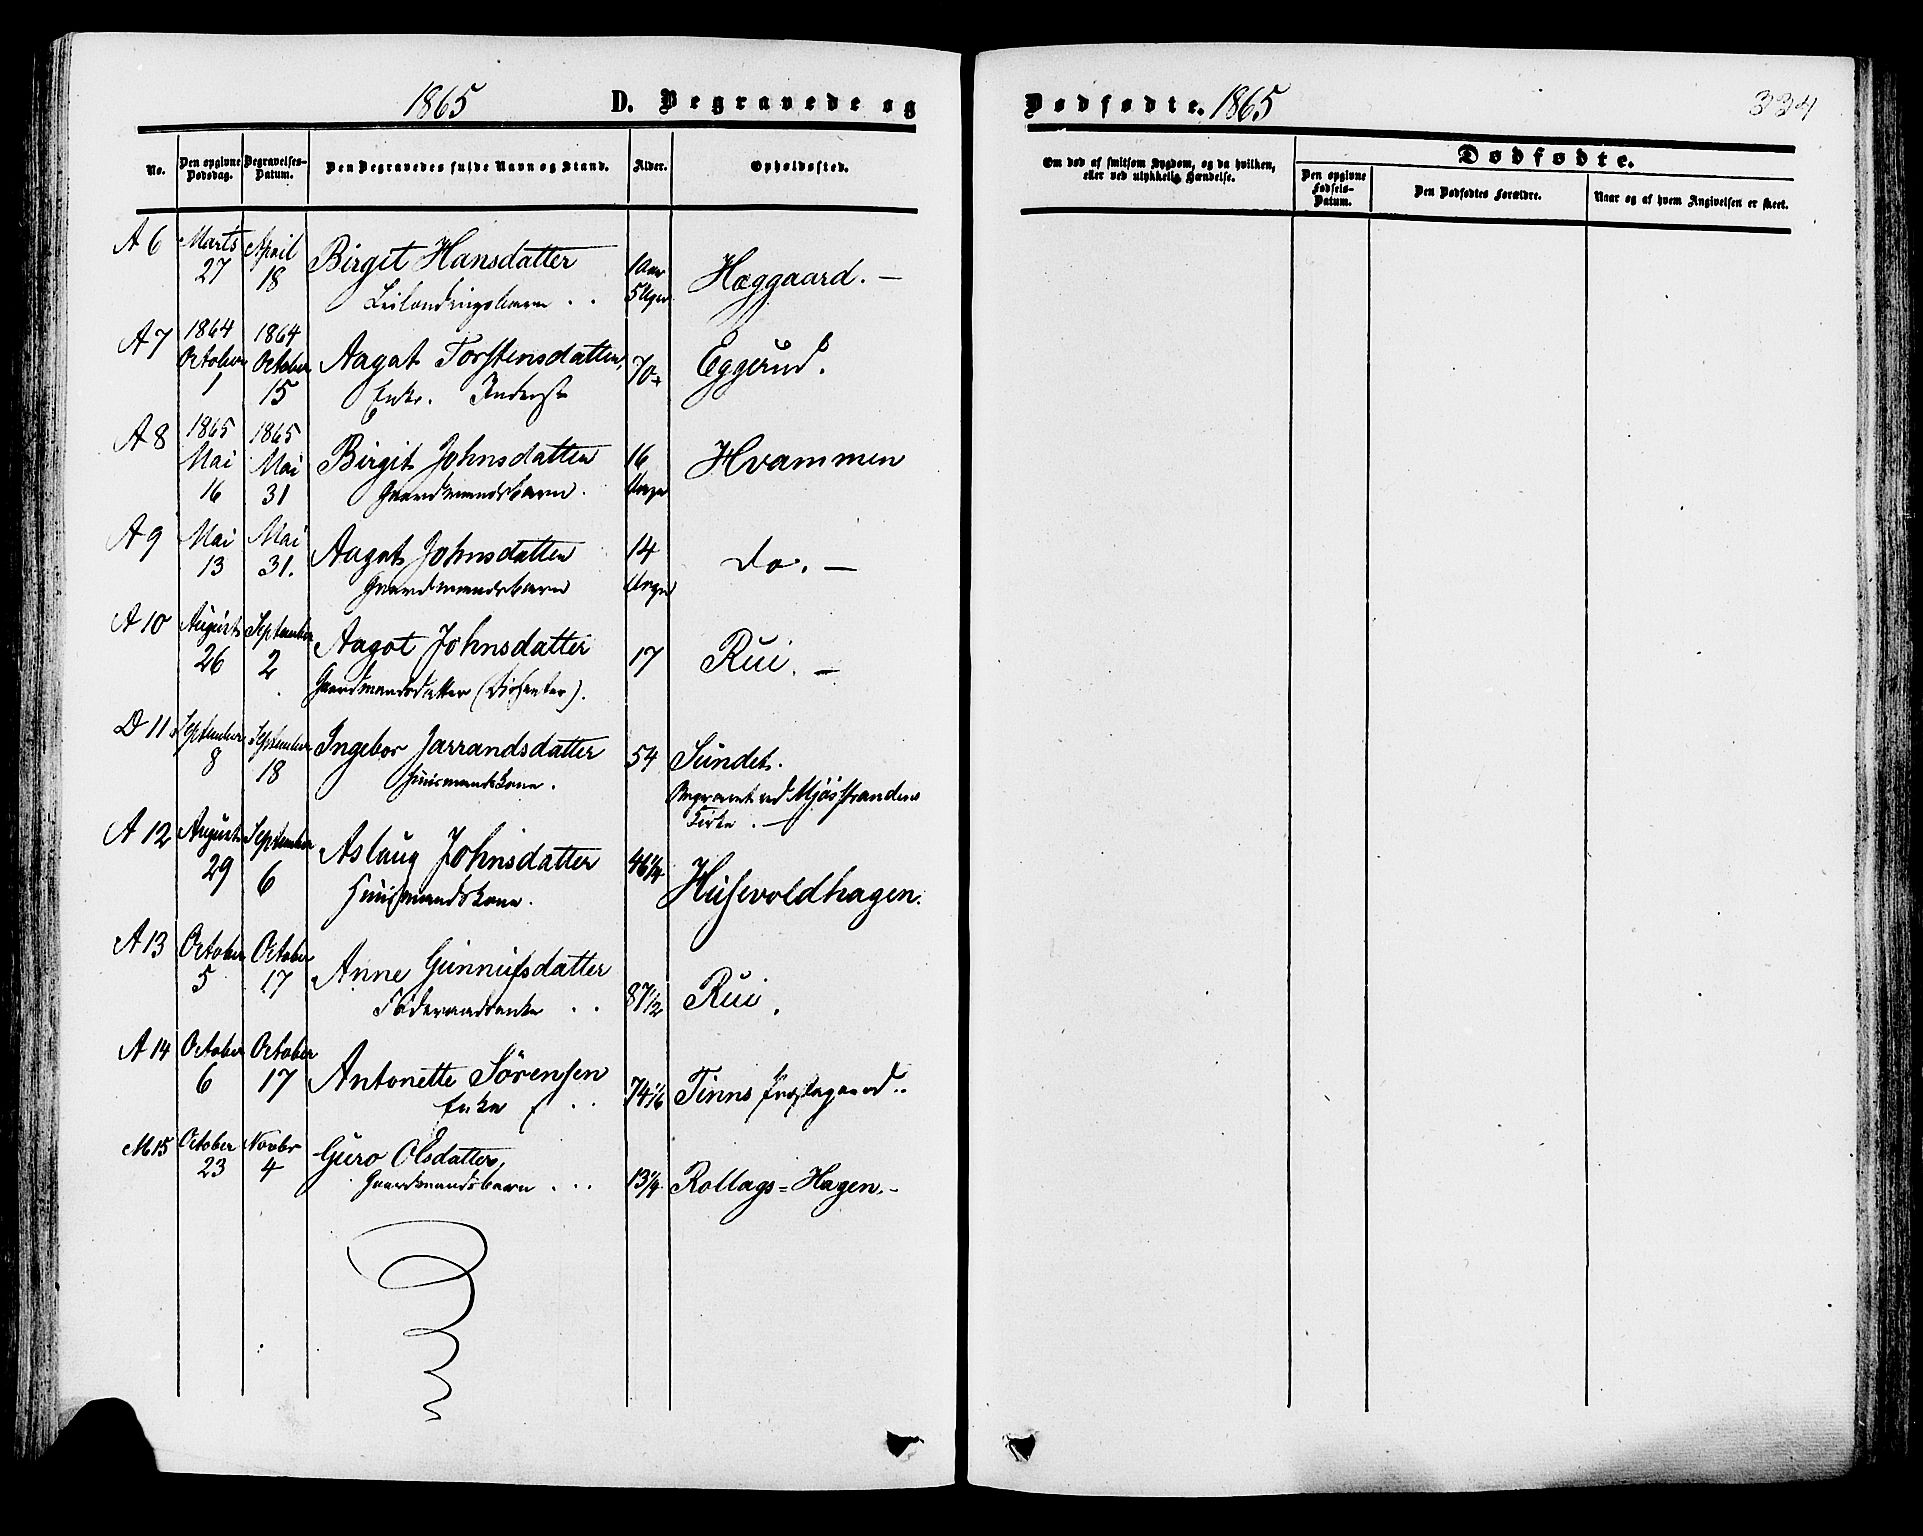 1865 D. Begravede og
No. Den opgivne Dødsdag. Begravelses-Datum. Den Begravedes fulde Navn og Stand. Alder. Opholdssted.
A 6 Marts 27 April 18 Birgit Hansdatter 1 Aar 5 Uger Hæggaard. —
Leilændingsbarn . .
A 7 1864 October 1 1864 October 15 Aagat Torstensdatter, 70 Eggerud.
Enke. Inderst
A 8 1865 Mai 16 1865 Mai 31 Birgit Johnsdatter 16 Uger Hvammen
Gaardmandsbarn.
A 9 Mai 13 Mai 31. Aagot Johnsdatter 14 Uger do. —
Gaardmandsbarn
A 10 August 26 September 2 Aagot Johnsdatter 17 Rui. —
Gaardmandsdatter (Dissenter).
D 11. September 8 September 18 Ingebor Jarrandsdatter 54 Sundet.
Huusmandskone. Begravet ved Mjøsstrandens
Kirke. —
A 12 August 29 September 6 Aslaug Johnsdatter 46 1/4 Husevoldhagen.
Huusmandskone.
A 13 October 5 October 17 Anne Gunnufsdatter 87 1/2 Rui.
Føderaadsenke . .
A 14 October 6 October 17 Antonette Sørensen 74 1/6 Tinns Præstegaard..
Enke . .
M 15 October 23 Novbr 4 Guro Olsdatter, 13 1/4 Rollags=Hagen.-
Gaardmandsbarn . . .
Dødfødte. 1865 334
Om død af smitsom Sygdom, og da hvilken, eller ved ulykkelig Hændelse. Dødfødte.
Den opgivne Fødsels-Datum. Den Dødfødtes Forældre. Naar og af hvem Angivelsen er skeet.